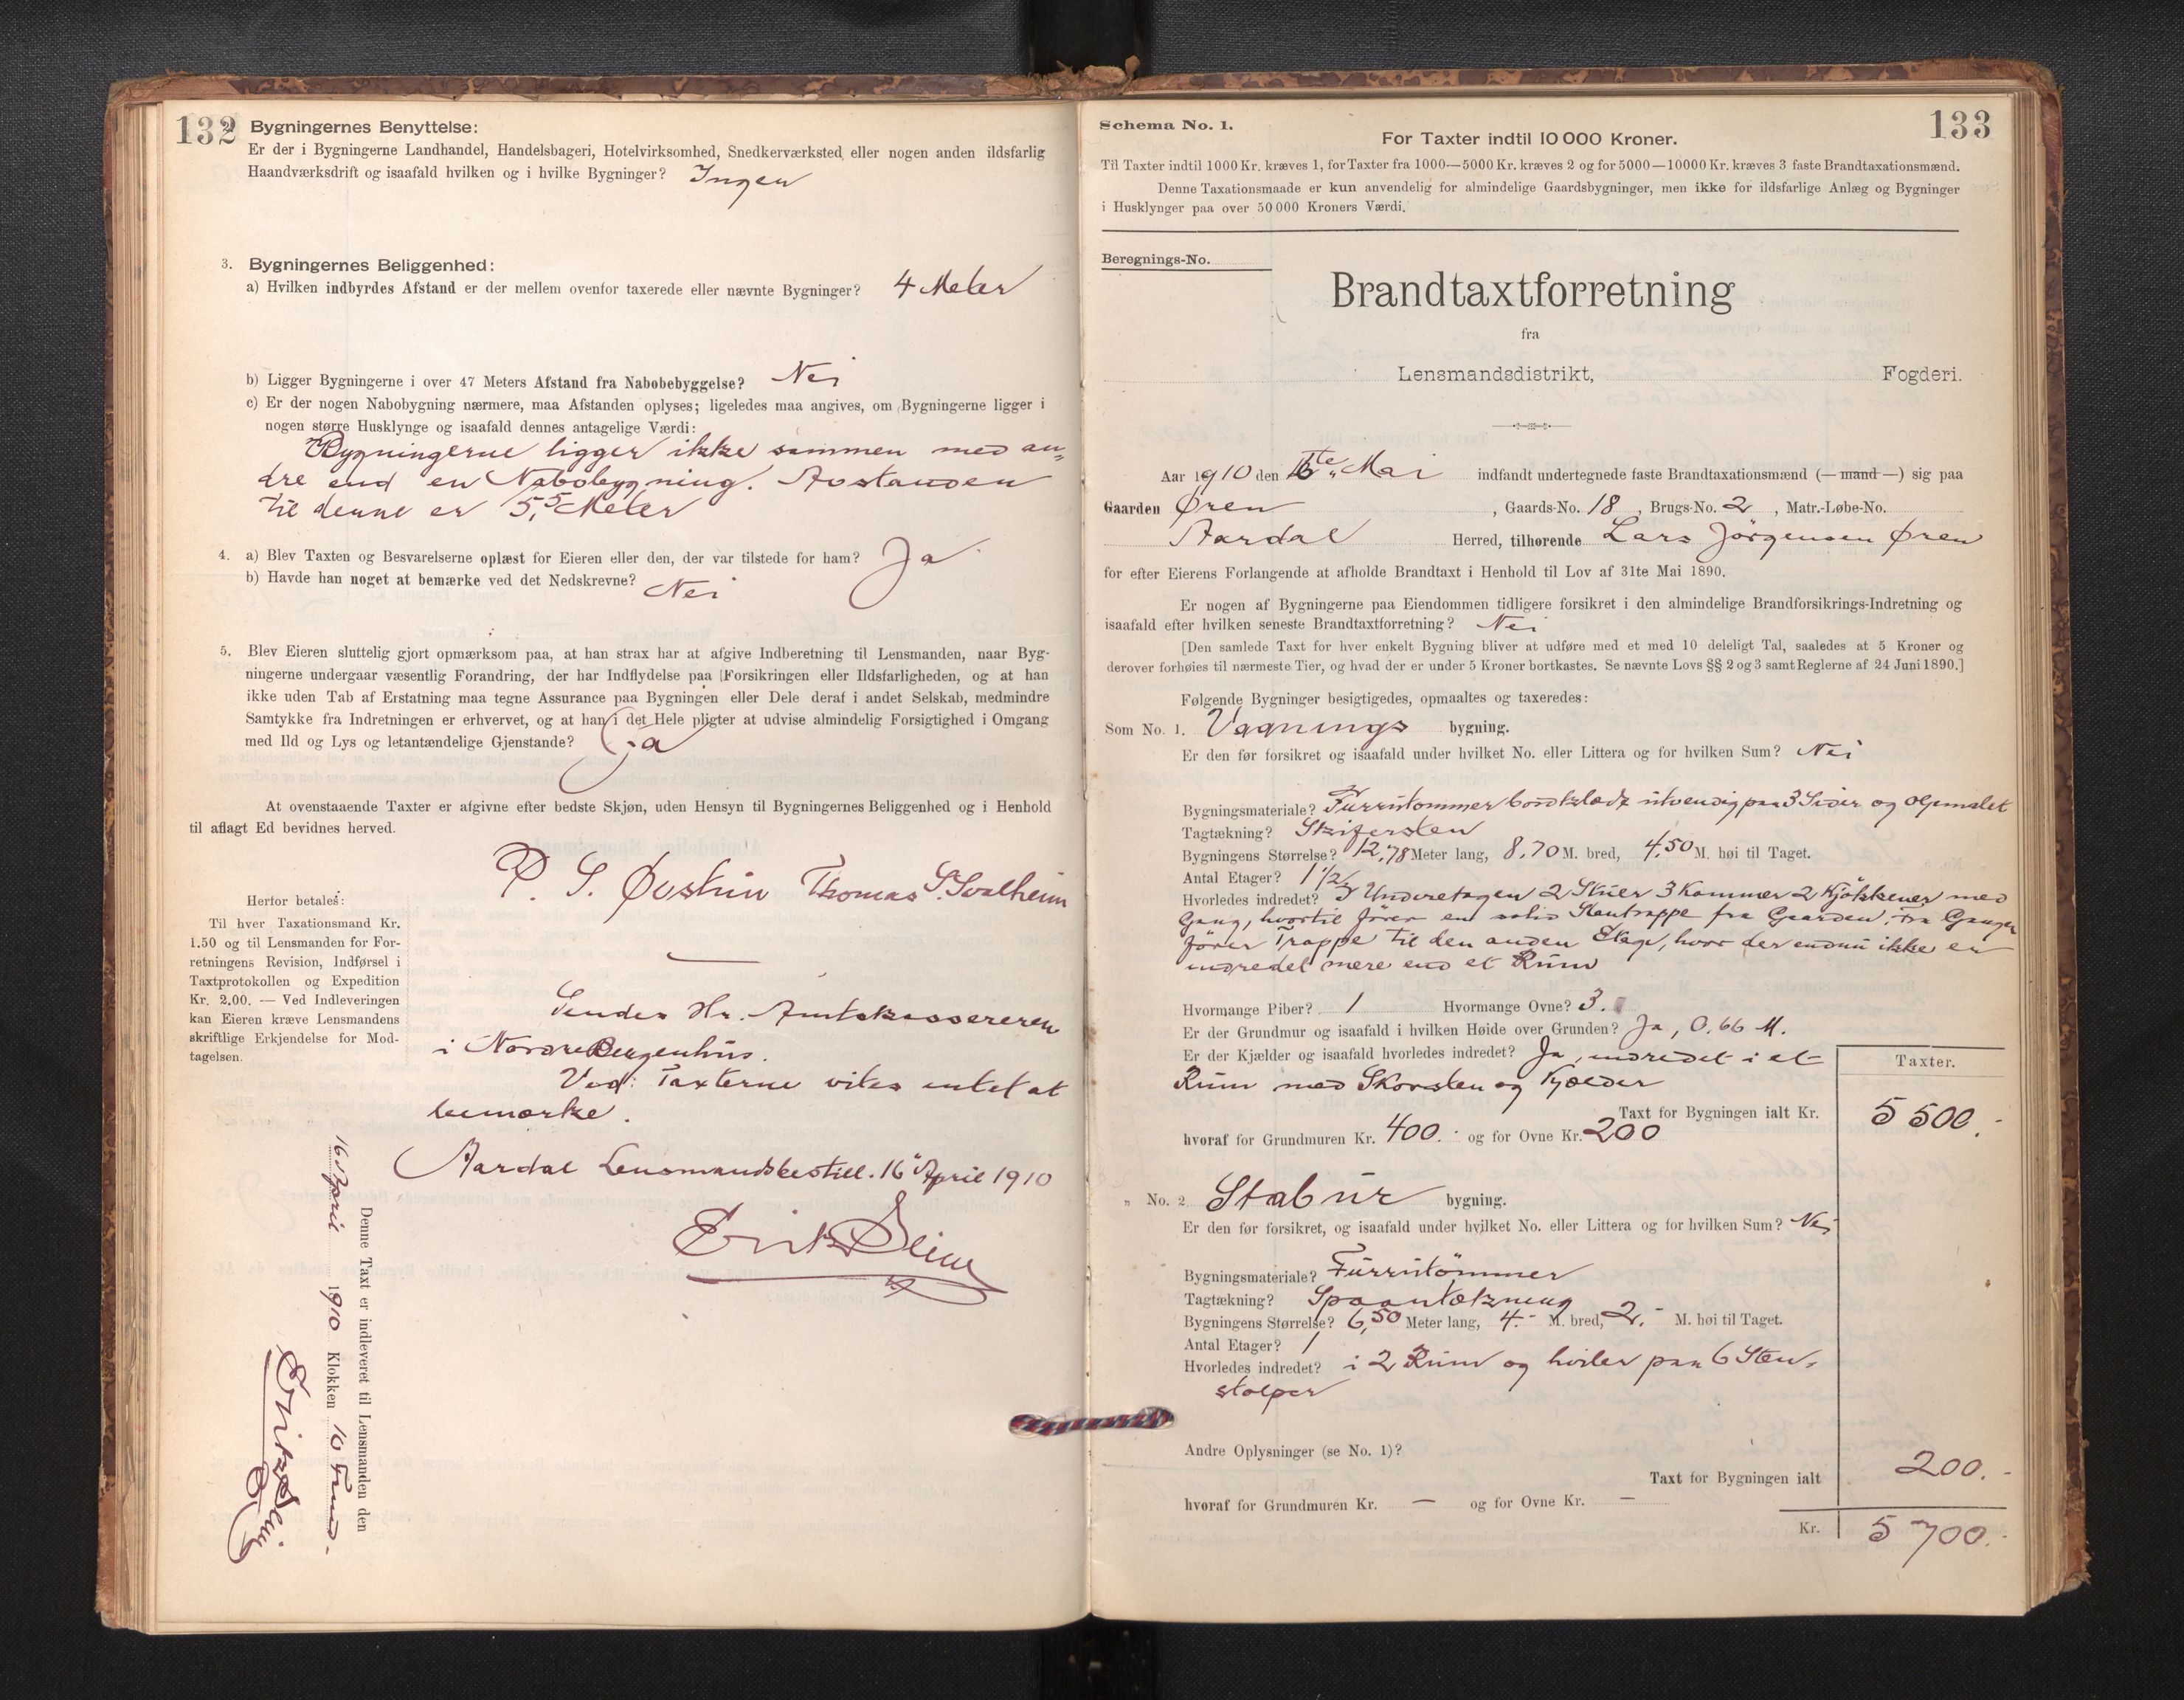 132
Bygningernes Benyttelse:
Er der i Bygningerne Landhandel, Handelsbageri, Hotelvirksomhed, Snedkerværksted eller nogen anden ildsfarlig
Haandværksdrift og isaafald hvilken og i hvilke Bygninger? Ingen
3. Bygningernes Beliggenhed:
a) Hvilken indbyrdes Afstand er der mellem ovenfor taxerede eller nævnte Bygninger? 4 Meter
b) Ligger Bygningerne i over 47 Meters Afstand fra Nabobebyggelse? Nei
c) Er der nogen Nabobygning nærmere, maa Afstanden oplyses; ligeledes maa angives, om Bygningerne ligger i
nogen større Husklynge og isaafald dennes antagelige Værdi:
Bygningerne ligger ikke sammen med an„
dre end en Nabobygning. Avstanden
til denne er 5,5 Meter
4. a) Blev Taxten og Besvarelserne oplæst for Eieren eller den, der var tilstede for ham? Ja
b) Havde han noget at bemærke ved det Nedskrevne? Nei
5. Blev Eieren sluttelig gjort opmærksom paa, at han strax har at afgive Indberetning til Lensmanden, naar Byg-
ningerne undergaar væsentlig Forandring, der har Indflydelse paa Forsikringen eller Ildsfarligheden, og at han
ikke uden Tab af Erstatning maa tegne Assurance paa Bygningen eller Dele deraf i andet Selskab, medmindre
Samtykke fra Indretningen er erhvervet, og at han i det Hele pligter at udvise almindelig Forsigtighed i Omgang
med Ild og Lys og letantændelige Gjenstande? Ja
At ovenstaaende Taxter er afgivne efter bedste Skjøn, uden Hensyn til Bygningernes Beliggenhed og i Henhold
til aflagt Ed bevidnes herved.
P. S. Øvstun Thomas S. Svalheim
Herfor betales:
Til hver Taxationsmand Kr.
1.50 og til Lensmanden for For-
retningens Revision, Indførsel i
Taxtprotokollen og Expedition
Kr. 2.00. — Ved Indleveringen
kan Eieren kræve Lensmandens
skriftlige Erkjendelse for Mod-
tagelsen.
Sendes Hr. Amtskassereren
i Nordre Bergenhus.
Ved Taxterne vites intet at
bemærke.
Aardal Lensmandsbestill. 16 April 1910
Erik Seim
Denne Taxt er indleveret til Lensmanden den
16 April 1910 Klokken 10 Form.
Erik Seim
133
Schema No. 1.
For Taxter indtil 10 000 Kroner.
Til Taxter indtil 1000 Kr. kræves 1, for Taxter fra 1000—5000 Kr. kræves 2 og for 5000—10000 Kr. kræves 3 faste Brandtaxationsmænd.
Denne Taxationsmaade er kun anvendelig for almindelige Gaardsbygninger, men ikke for ildsfarlige Anlæg og Bygninger
i Husklynger paa over 50 000 Kroners Værdi.
Beregnings-No.
Brandtaxtforretning
fra
Lensmandsdistrikt, Fogderi.
Aar 1910 den Mai indfandt undertegnede faste Brandtaxationsmænd (— mand —) sig paa
Gaarden Øren, Gaards-No. 18, Brugs-No. 2, Matr.-Løbe-No.
Aardal Herred, tilhørende Lars Jörgensen Øren
for efter Eierens Forlangende at afholde Brandtaxt i Henhold til Lov af 31te Mai 1890.
Er nogen af Bygningerne paa Eiendommen tidligere forsikret i den almindelige Brandforsikrings-Indretning og
isaafald efter hvilken seneste Brandtaxtforretning? Nei
[Den samlede Taxt for hver enkelt Bygning bliver at udføre med et med 10 deleligt Tal, saaledes at 5 Kroner og
derover forhøies til nærmeste Tier, og hvad der er under 5 Kroner bortkastes. Se nævnte Lovs §§ 2 og 3 samt Reglerne af 24 Juni 1890.]
Følgende Bygninger besigtigedes, opmaaltes og taxeredes:
Som No. 1. Vaanings bygning.
Er den før forsikret og isaafald under hvilket No. eller Littera og for hvilken Sum? Nei
Bygningsmateriale? Furrutommer bordklædt utvendig paa 3 Sider og oljemalet
Tagtækning? Skifersten
Bygningens Størrelse? 12,78 Meter lang, 8,70 M. bred, 4,50 M. høi til Taget.
Antal Etager? 1 1/2
Hvorledes indredet? I Underetagen 2 Stuer 3 Kammer 2 Kjökkener med
Gang, hvortil förer en solid Stentrappe fra Gaarden. Fra Gangen
förer Trappe til den anden Etage, hvor der endnu ikke er
indredet mere end et Rum
Hvormange Piber? 1 Hvormange Ovne? 3.
Er der Grundmur og isaafald i hvilken Høide over Grunden? Ja, 0.66 M.
Er der Kjælder og isaafald hvorledes indredet? Ja, indredet i et
Rum med Skorsten og Kjælder
Taxter.
Taxt for Bygningen ialt Kr. 5 500.-
hvoraf for Grundmuren Kr. 400.- og for Ovne Kr. 200
„ No. 2 Stabur bygning.
Er den før forsikret, og isaafald under hvilket No. eller Littera og for hvilken Sum? Nei
Bygningsmateriale? Furrutömmer
Tagtækning? Spaantækning
Bygningens Størrelse? 6,50 Meter lang, 4.- M. bred, 2.- M. høi til Taget.
Antal Etager? 1
Hvorledes indredet? i 2 Rum og hviler paa 6 Sten-
stolper
Andre Oplysninger (se No. 1)?
Taxt for Bygningen ialt 200.-
hvoraf for Grundmuren Kr. — og for Ovne Kr. —
Kr. 5 700.-